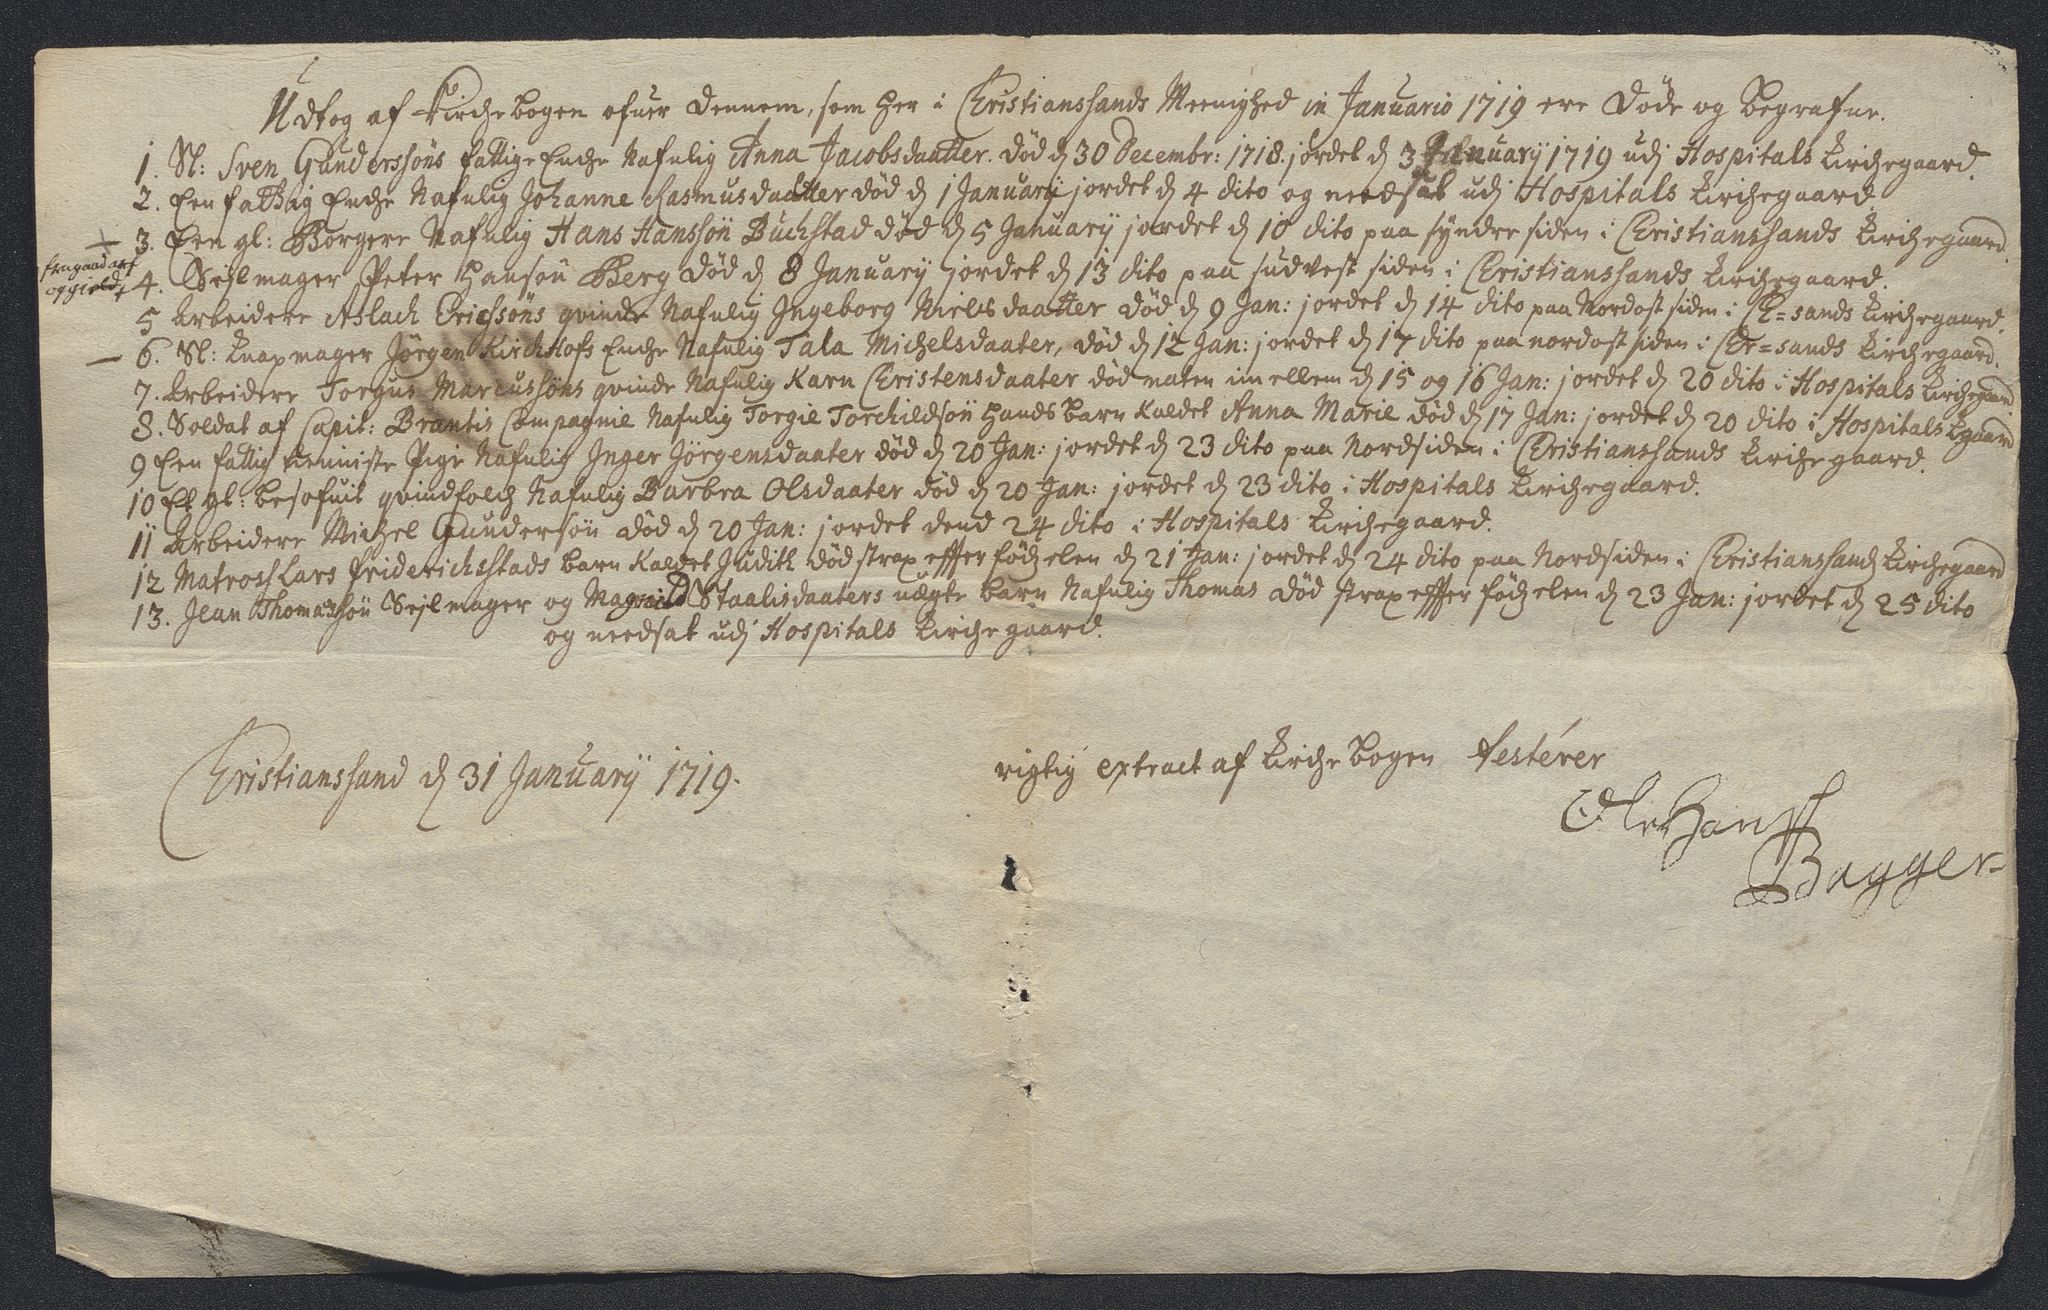 Udtog af Kirchebogen ofuer dennem, som her i Christianssands Meenighed in Januario 1719 ere døde og begrafne.
1. Sl: Sven Gunderssöns fattige Enche Nafnlig Anna Jacobsdaatter. død d 30 Decembr: 1718. jordet d 3 January 1719 udj Hospitals Kirchegaard.
2. Een fattig Enche Nafnlig Johanne Rasmusdaatter død d 1 January jordet d 4 dito og needsat udj Hospitals Kirchegaard
3. Een gl: Borgere Nafnlig Hans Hanssön Buchstad død d 5 January jordet d 10 dito paa syndre siden i Christianssands Kirchegaard.
og gield
4. Sejlmager Peter Hansön Berg død d 8 January jordet d 13 dito paa sudvest siden i Christianssands Kirchegaard.
5 Arbeidere Aslach Erichsöns qvinde Nafnlig Ingeborg Nielsdaatter død d 9 Jan: jordet d 14 dito paa Nordost siden i Chr=sands Kirchegaard.
6. Sl: Knapmager Jörgen Kirchhofs Enche Nafnlig Tala Michelsdaater, død d 12 Jan: jordet d 17 dito paa nordost siden i Chr=sands Kirchegaard.
7. Arbeidere Torgus Marcussöns qvinde Nafnlig Karn Christensdaater død naten imellem d 15 og 16 Jan: jordet d 20 dito i Hospitals Kirchegaard
8. Soldat af Capit: Brantis Compagnie Nafnlig Torgie Torchildsön hands barn kaldet Anna Marie død d 17 Jan: jordet d 20 dito i Hospitals Kgaard
9 Een fattig tieniste Pige Nafnlig Inger Jörgensdaater død d 20 Jan: jordet d 23 dito paa Nordsiden i Christianssands Kirchegaard.
10 Et gl: besofuit qvindfolch Nafnlig Barbra Olsdaater død d 20 Jan: jordet d 23 dito i Hospitals Kirchegaard.
11 Arbeidere Michel Gundersön død d 20 Jan: jordet dend 24 dito i Hospitals Kirchegaard.
12 Matros Lars Friderichstads barn kaldet Judith død strax effter fødzelen d 21 Jan: jordet d 24 dito paa Nordsiden i Christianssands Kirchegaard
13. Jean Thomassön Sejlmager og Magnild Staalisdaaters uægte barn Nafnlig Thomas død strax effter fødzelen d 23 Jan: jordet d 25 dito
og needsat udj Hospitals Kirchegaard.
Christianssand d 31 January 1719.
rigtig extract af Kirchebogen Testérer
Ole Hanss
Bagger